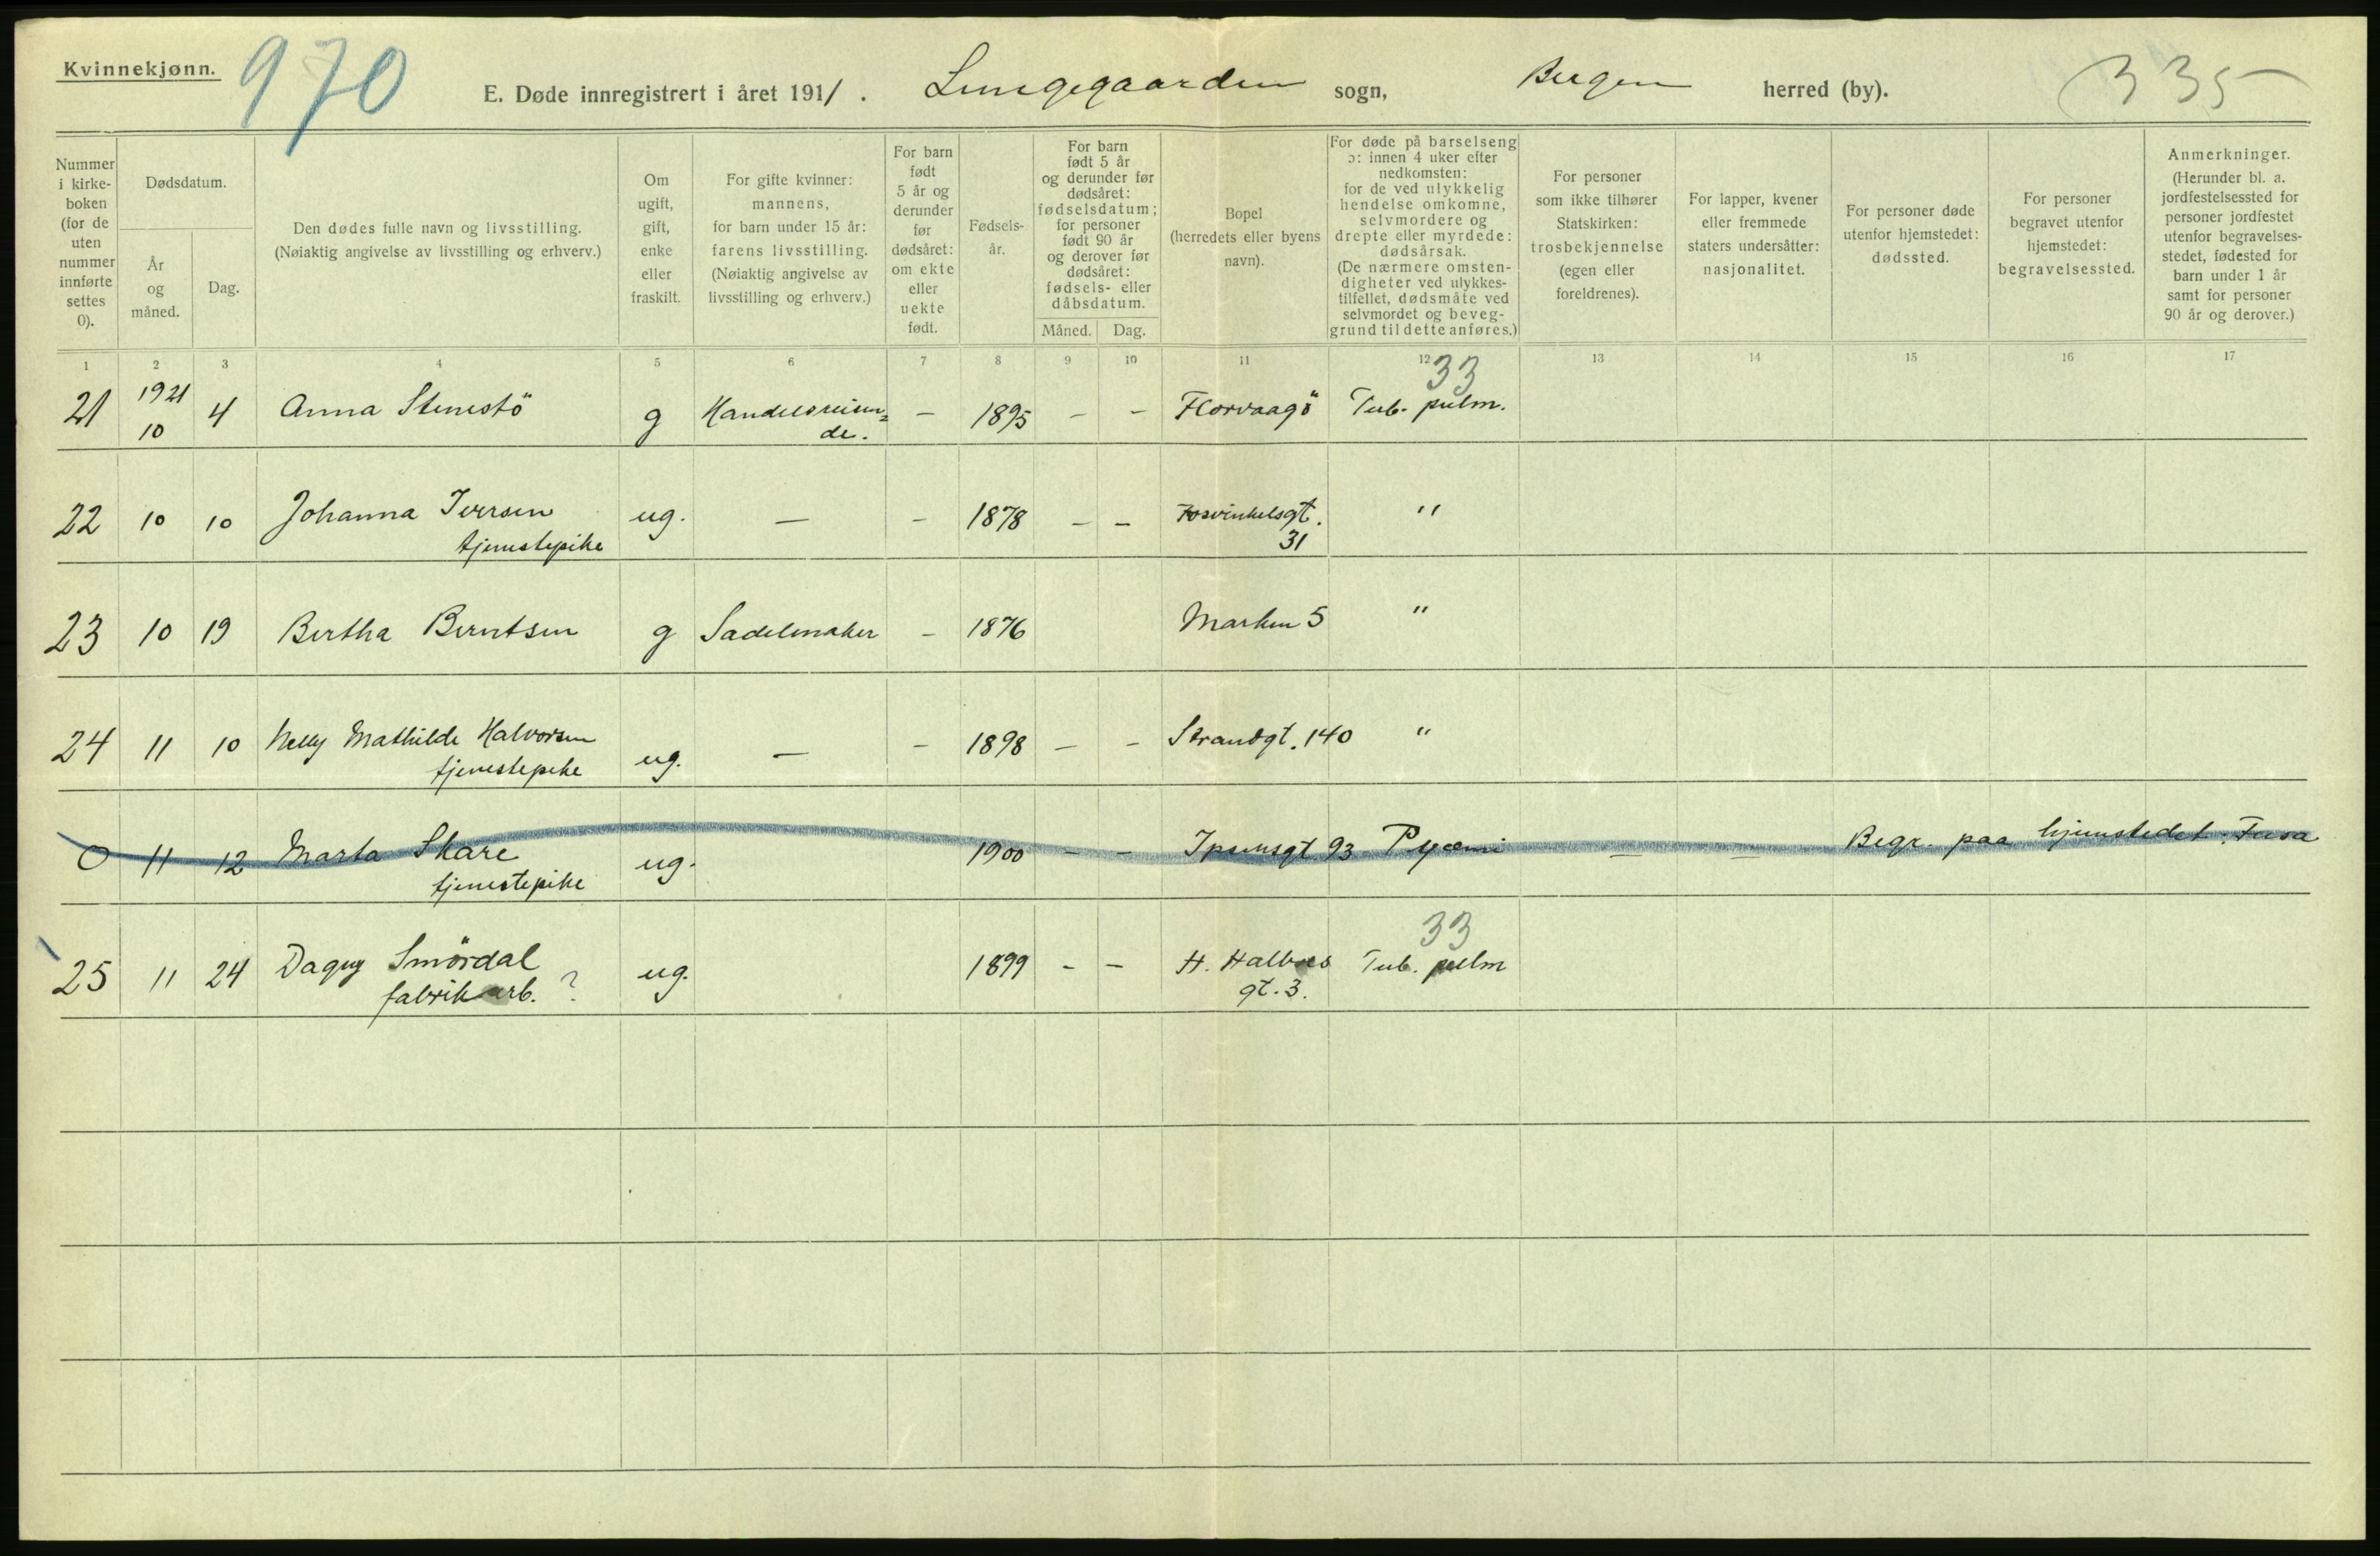 Kvinnekjønn.
970
E. Døde innregistrert i året 191/ . Lungegaarden sogn, Bergen herred (by).
335
Nummer i kirke- boken (for de uten nummer innførte settes 0).
Dødsdatum.
År og måned.
Dag.
Den dødes fulle navn og livsstilling.
(Nøiaktig angivelse av livsstilling og erhverv.)
Om ugift, gift, enke eller fraskilt.
For gifte kvinner: mannens, for barn under 15 år: farens livsstilling.
(Nøiaktig angivelse av livsstilling og erhverv.)
For barn født 5 år og derunder før dødsåret: om ekte eller uekte født.
Fødsels- år.
For barn født 5 år og derunder før dødsåret: fødselsdatum; for personer født 90 år og derover før dødsåret: fødsels- eller dåbsdatum.
Måned. Dag.
Bopel (herredets eller byens navn).
For døde på barselseng ɔ: innen 4 uker efter nedkomsten: for de ved ulykkelig hendelse omkomne, selvmordere og drepte eller myrdede: dødsårsak.
(De nærmere omsten- digheter ved ulykkes- tilfellet, dødsmåte ved selvmordet og beveg- grund til dette anføres.)
For personer som ikke tilhører Statskirken: trosbekjennelse (egen eller foreldrenes).
For lapper, kvener eller fremmede staters undersåtter: nasjonalitet.
For personer døde utenfor hjemstedet: dødssted.
For personer begravet utenfor hjemstedet: begravelsessted.
Anmerkninger.
(Herunder bl. a. jordfestelsessted for personer jordfestet utenfor begravelses- stedet, fødested for barn under 1 år samt for personer 90 år og derover.)
1 2 3 4 5 6 7 8 9 10 11 12 13 14 15 16 17
33
21 1921 10 4 Anna Stenestö g Handelsreisen= de. – 1895 – – Florvaagö Tub. pulm.
22 10 10 Johanna Iversen ug. — – 1878 – – Rosvinkelsgt. "
tjenestepike 31
23 10 19 Bertha Berntsen g Sadelmaker – 1876 Marken 5 "
24 11 10 Nelly Mathilde Halvorsen ug. — – 1898 – – Strandgt. 140 "
tjenestepike
0 11 12 Marta Skare ug. 1900 – – Ipsensgt 93 Pyæmi — — Begr. paa hjemstedet: Fusa
tjenestepike
33
25 11 24 Dagny Smördal ug. 1899 – – H. Tub. pulm
fabrikarb. ? gt. 3.